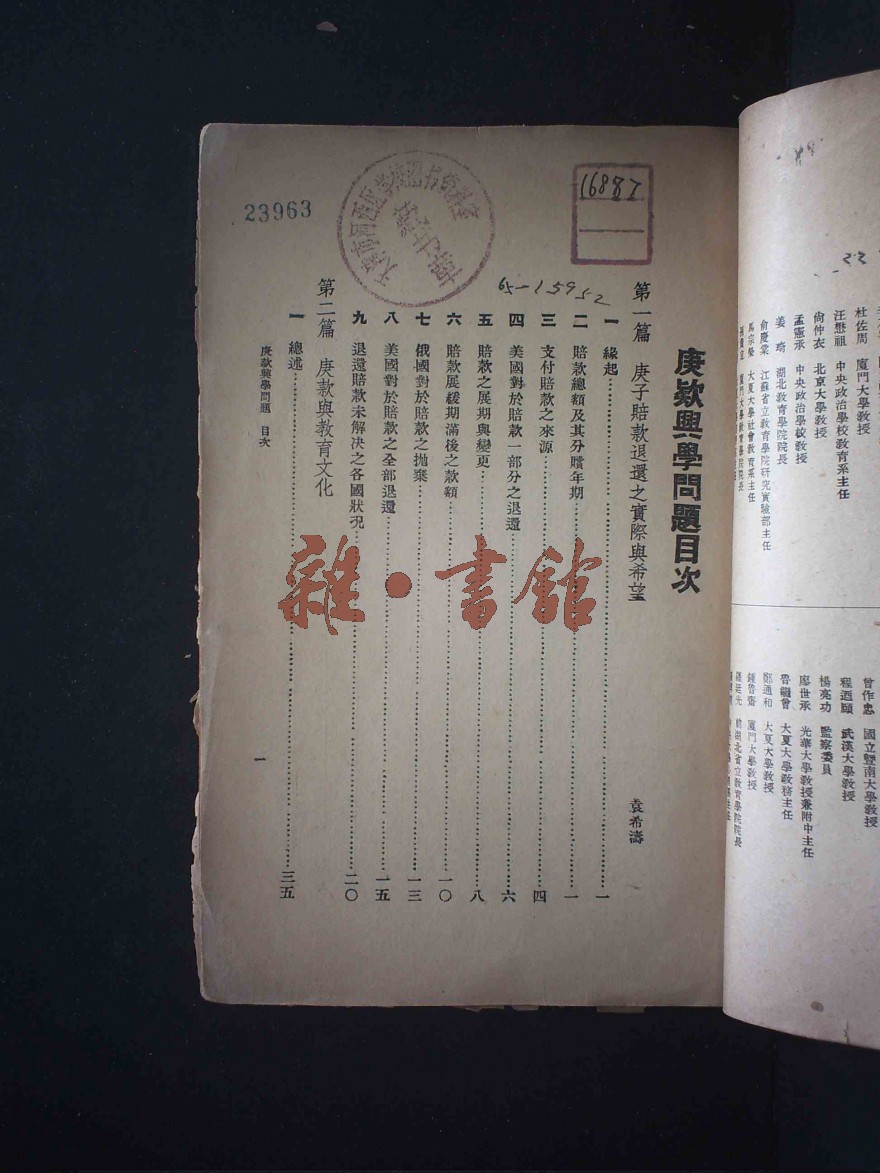 曾作忠 國立暨南大學教授
程迺頤 武漢大學教授
楊亮功 監察委員
廖世承 光華大學教授兼附中主任
魯繼曾 大夏大學教務主任
鄭通和 大夏大學教授
鍾魯齋 廈門大學教授
杜佐周 廈門大學教授
汪懋祖 中央政治學校教育系主任
尙仲衣 北京大學教授
孟憲承 中央政治學校敎授
姜琦 湖北教育學院院長
俞慶棠 江蘇省立敎育學院研究實驗部主任
馬宗榮 大夏大學社會敎育系主任
庚欵興學問題目次
第一篇 庚子賠款退還之實際與希望 袁希濤
一 緣起 一
二 賠款總額及其分贖年期 一
三 支付賠款之來源 四
四 美國對於賠款一部分之退還 六
五 賠款之展期與變更 八
六 賠款展緩期滿後之款額 一〇
七 俄國對於賠款之拋棄 一三
八 美國對於賠款之全部退還 一五
九 退還賠款未解決之各國狀況 二〇
第二篇 庚款與教育文化
一 總述 三五
庚款興學問題 目次
一
23963
16887
65-15952
雜·書館